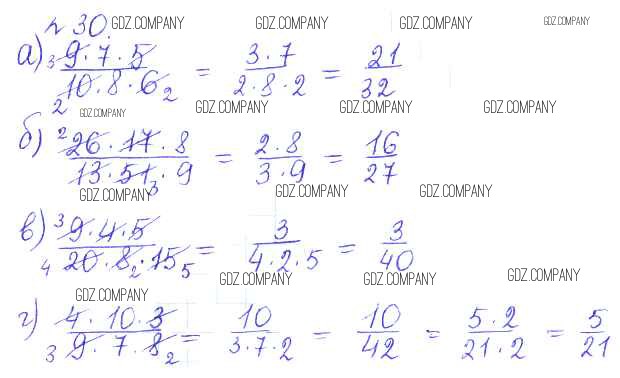 № 30. GDZ.COMPANY GDZ.COMPANY GDZ.COMPANY GDZ.COMPANY
а) ³9·7·5 / ₂10·8·6₂ = 3·7 / 2·8·2 = 21 / 32
GDZ.COMPANY GDZ.COMPANY GDZ.COMPANY GDZ.COMPANY
б) ²26·17·8 / 13·51₃·9 = 2·8 / 3·9 = 16 / 27
GDZ.COMPANY GDZ.COMPANY GDZ.COMPANY
в) ³9·4·5 / ₄20·8₂·15₅ = 3 / 4·2·5 = 3 / 40
GDZ.COMPANY GDZ.COMPANY GDZ.COMPANY GDZ.COMPANY
г) 4·10·3 / ₃9·7·8₂ = 10 / 3·7·2 = 10 / 42 = 5·2 / 21·2 = 5 / 21